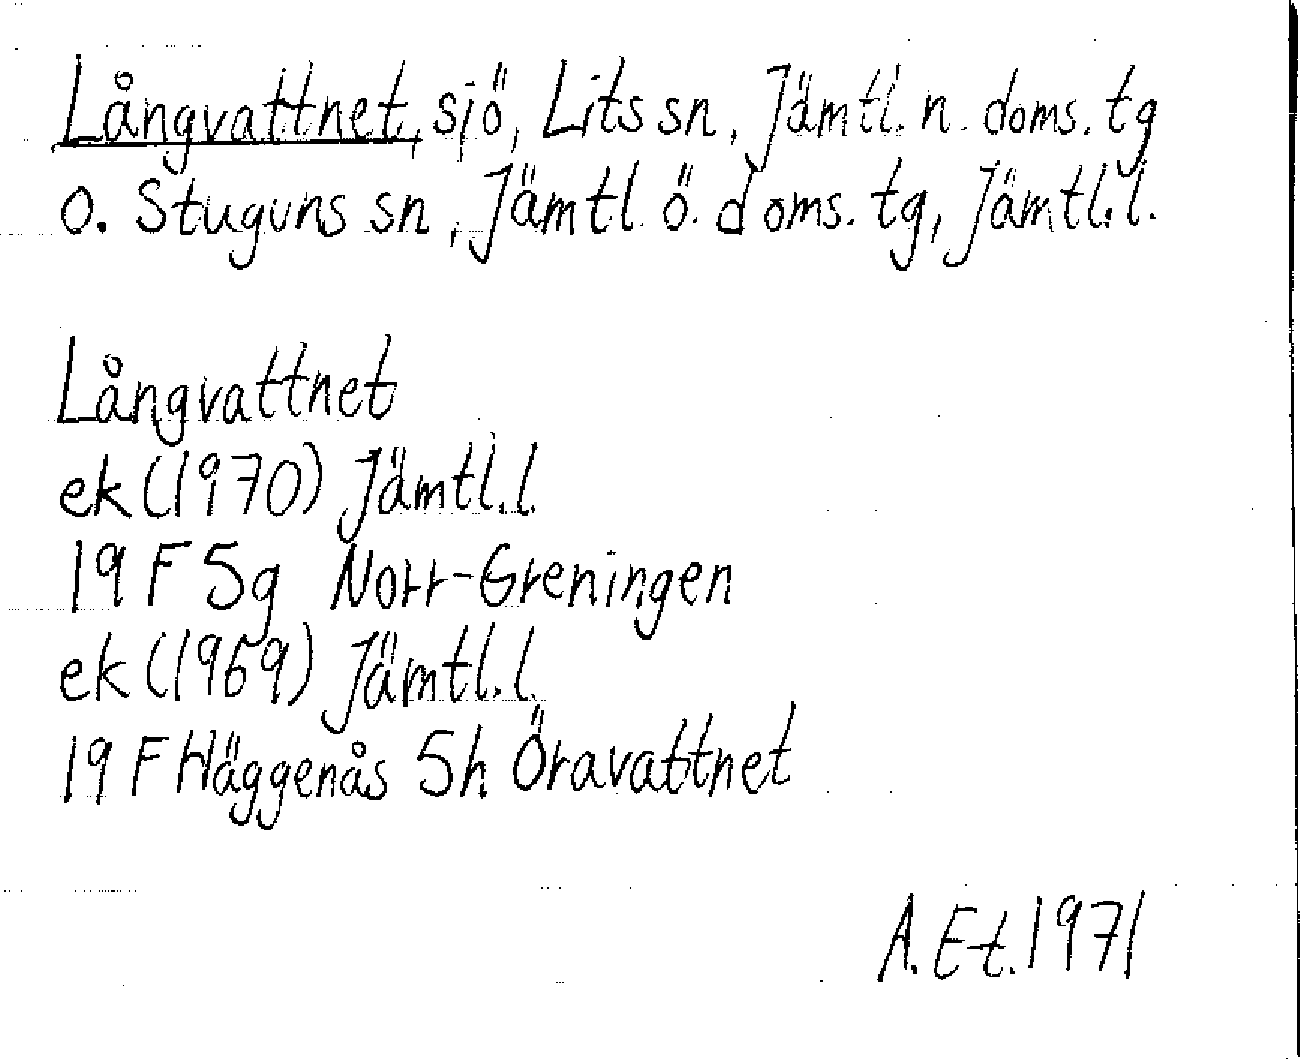 Långvattnet, sjö, Lits sn, Jämtl. n. doms. tg
o. Stuguns sn, Jämtl. ö. doms. tg, Jämtl. l.
Långvattnet
ek (1970) Jämtl. l.
19 F 5g Norr-Greningen
ek (1969) Jämtl. l.
19 F Häggenås 5h Öravattnet
A. Et. 1971